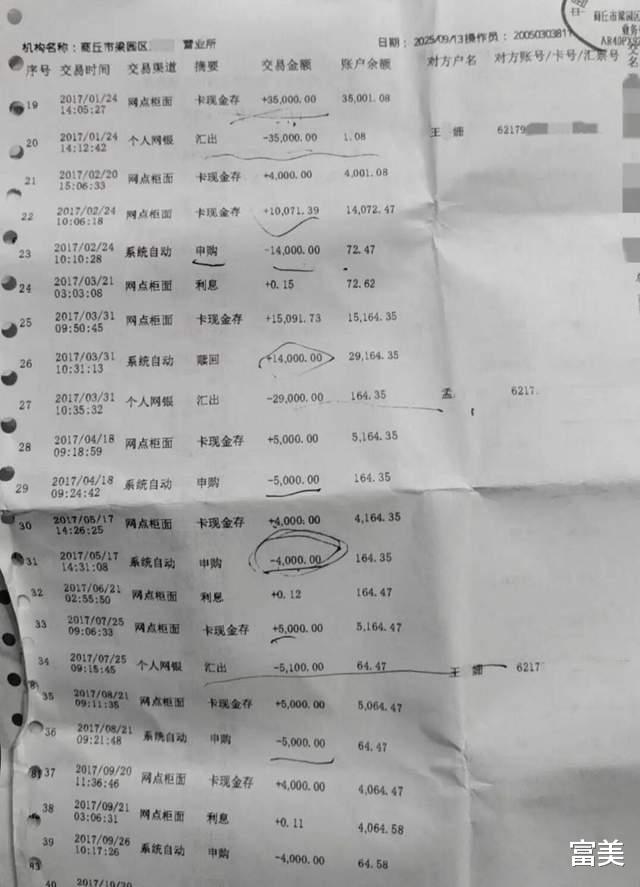 商丘市梁园区
业务
机构名称：商丘市梁园区 营业所 日期：2025/09/13操作员：2005030381
序号 交易时间 交易渠道 摘要 交易金额 账户余额 对方户名 对方账号/卡号/汇票号
19 2017/01/24 14:05:27 网点柜面 卡现金存 +35,000.00 35,001.08
20 2017/01/24 14:12:42 个人网银 汇出 -35,000.00 1.08 王 姗 62179
21 2017/02/20 15:06:33 网点柜面 卡现金存 +4,000.00 4,001.08
22 2017/02/24 10:06:18 网点柜面 卡现金存 +10,071.39 14,072.47
23 2017/02/24 10:10:28 系统自动 申购 -14,000.00 72.47
24 2017/03/21 03:03:08 网点柜面 利息 +0.15 72.62
25 2017/03/31 09:50:45 网点柜面 卡现金存 +15,091.73 15,164.35
26 2017/03/31 10:31:13 系统自动 赎回 +14,000.00 29,164.35
27 2017/03/31 10:35:32 个人网银 汇出 -29,000.00 164.35 孟 6217
28 2017/04/18 09:18:59 网点柜面 卡现金存 +5,000.00 5,164.35
29 2017/04/18 09:24:42 系统自动 申购 -5,000.00 164.35
30 2017/05/17 14:26:25 网点柜面 卡现金存 +4,000.00 4,164.35
31 2017/05/17 14:31:08 系统自动 申购 -4,000.00 164.35
32 2017/06/21 02:55:50 网点柜面 利息 +0.12 164.47
33 2017/07/25 09:06:33 网点柜面 卡现金存 +5,000.00 5,164.47
34 2017/07/25 09:15:45 个人网银 汇出 -5,100.00 64.47 王 姗 6217
35 2017/08/21 09:11:35 网点柜面 卡现金存 +5,000.00 5,064.47
36 2017/08/21 09:21:48 系统自动 申购 -5,000.00 64.47
37 2017/09/20 11:36:46 网点柜面 卡现金存 +4,000.00 4,064.47
38 2017/09/21 03:06:31 网点柜面 利息 +0.11 4,064.58
39 2017/09/26 10:17:26 系统自动 申购 -4,000.00 64.58
40
富美